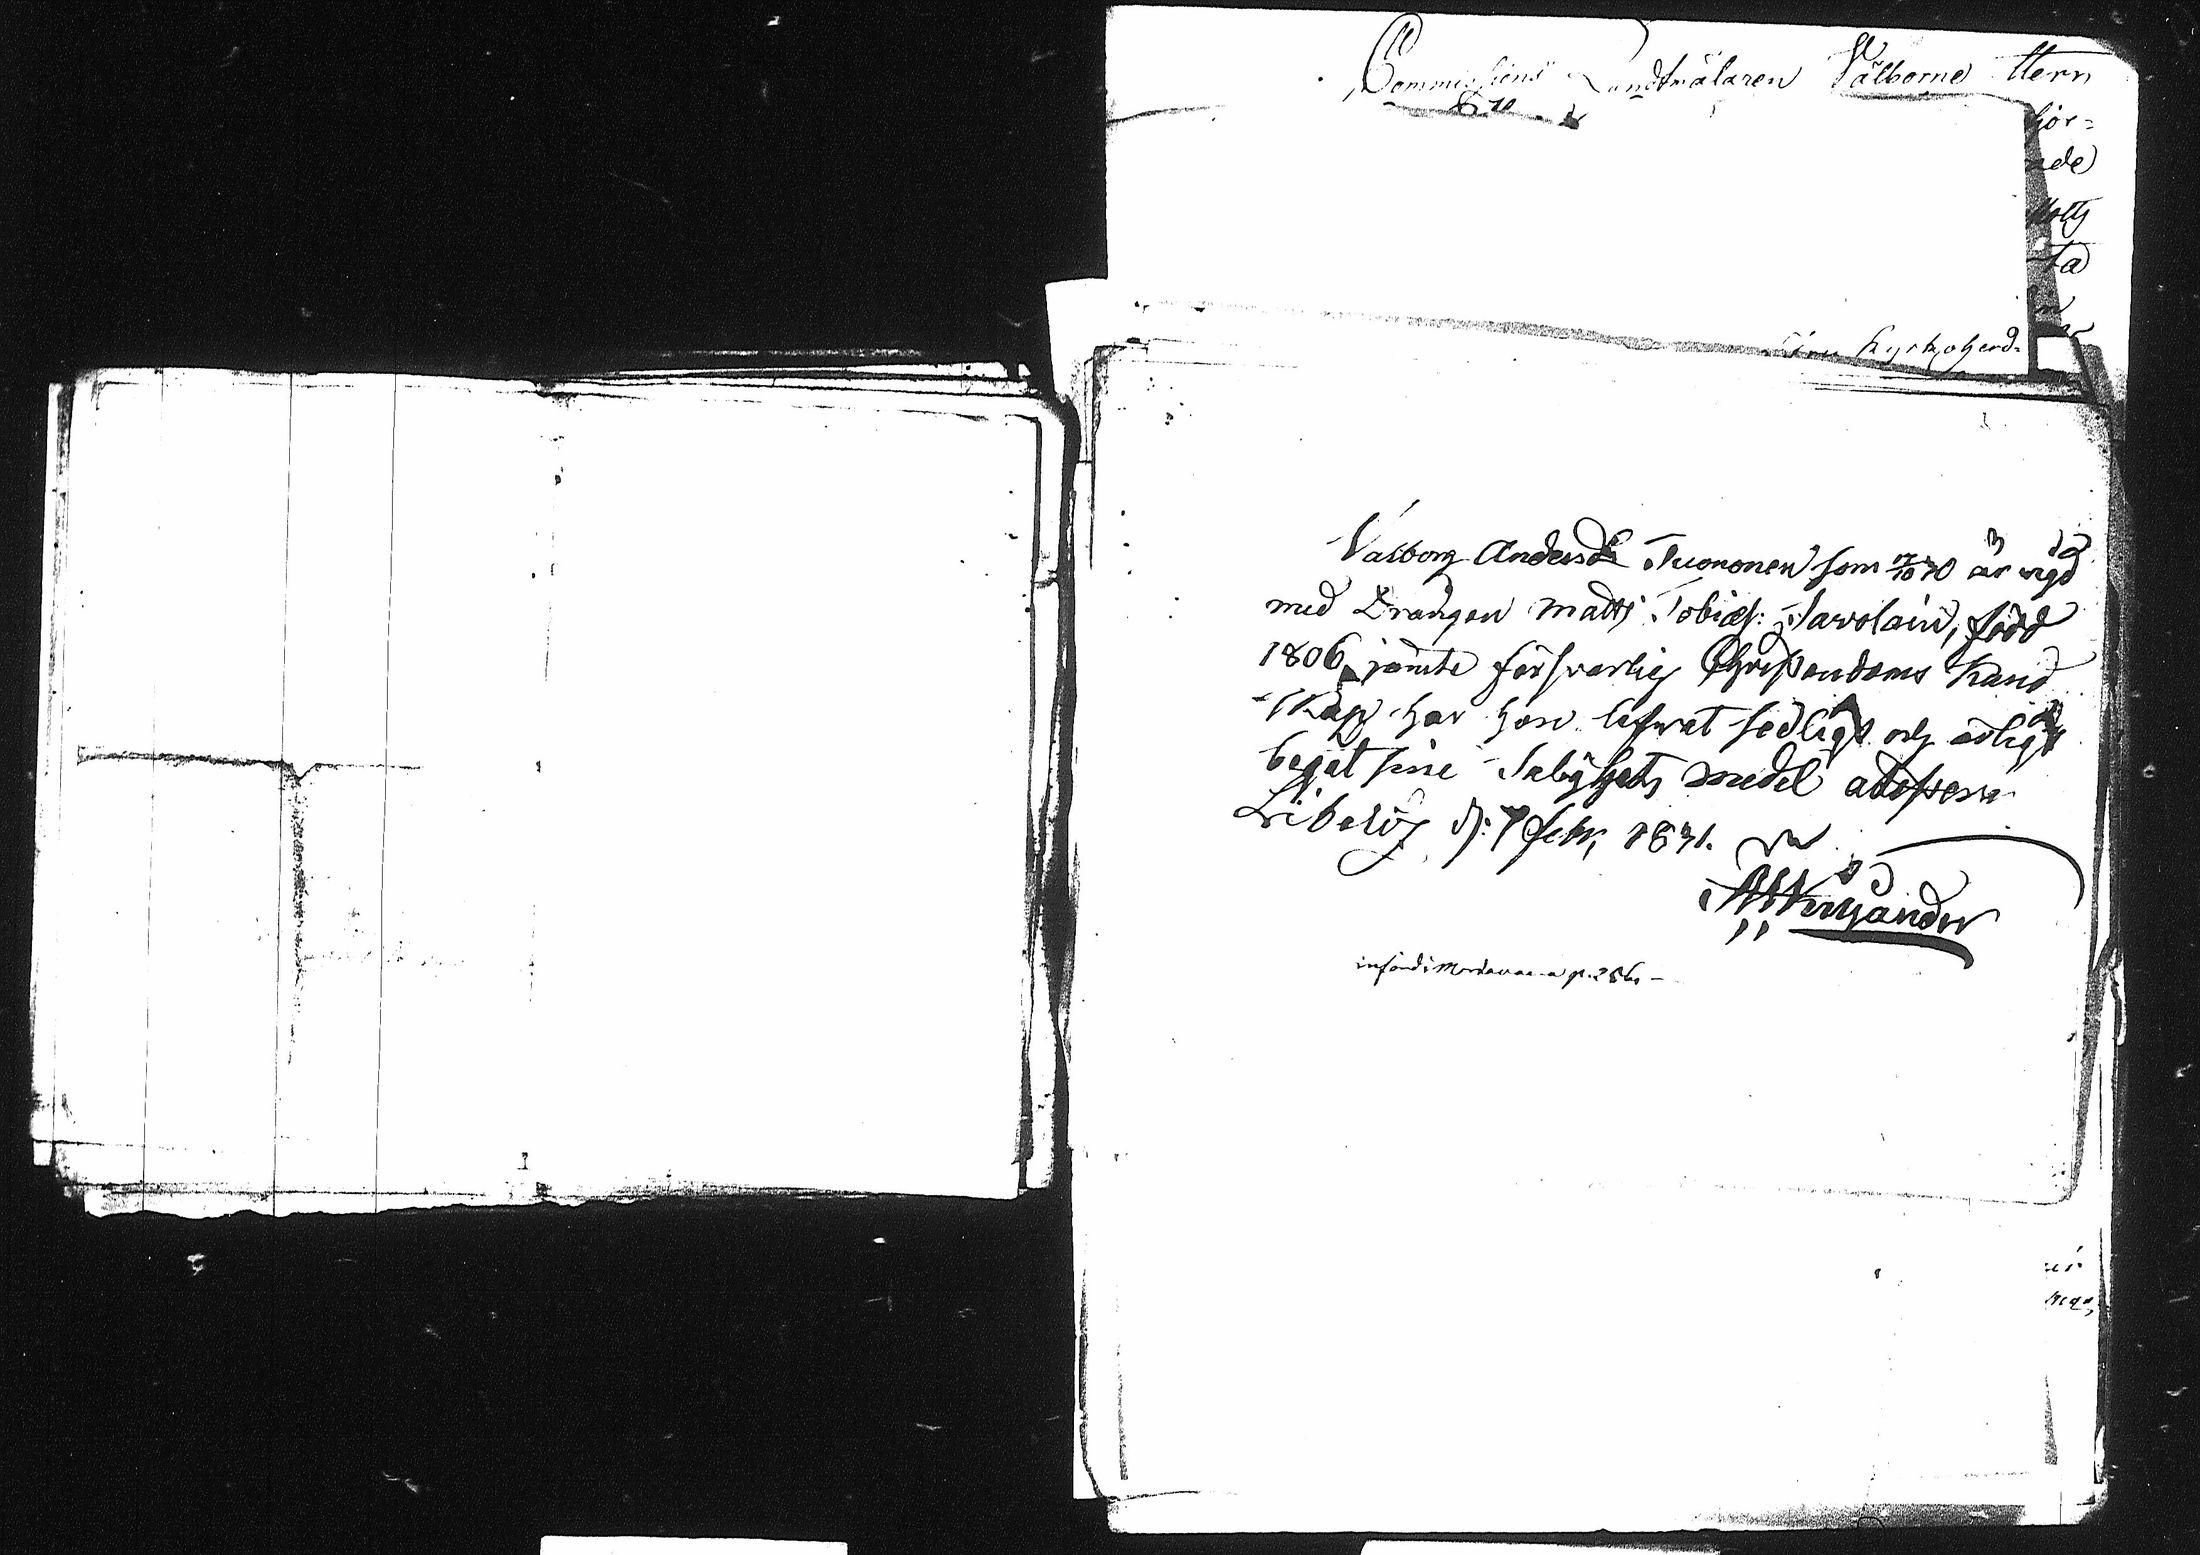 Commissions Landtmälaren Välborne Herr
hör=
ade
ta
Kyrkoherd=
Valborg Andersdr Tuononen som 17/10 30 är vigd
med Drängen Matts Tobiæs: Savolain, född
1806, jämte försvarlig Christendoms Kund
-skap har hon lefwat sedligt och ärligt
begåt sine Salighets medel attesterar
Libelitz d: 7 febr, 1831.
införd i p. 286. –